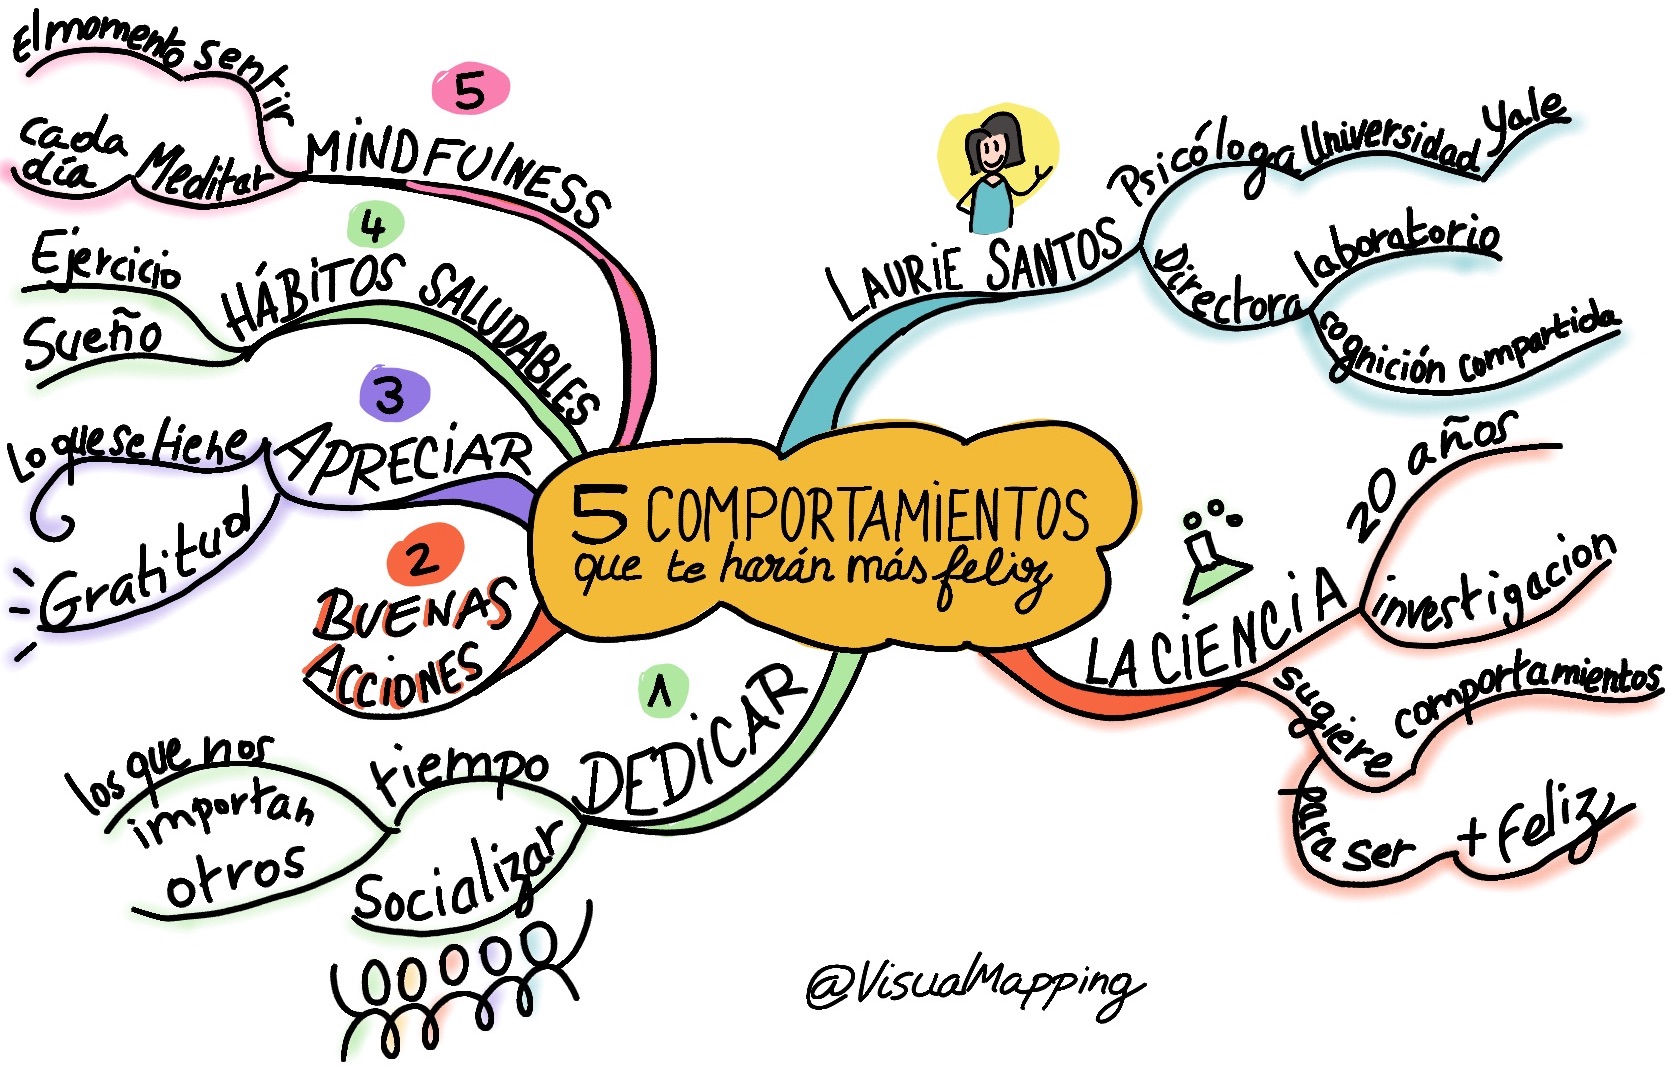 5 COMPORTAMIENTOS
que te harán más feliz
LAURIE SANTOS
Psicóloga Universidad Yale
Directora laboratorio
cognición compartida
LA CIENCIA
20 años
investigacion
sugiere comportamientos
para ser + feliz
1
DEDICAR
tiempo
los que nos
importan
otros
Socializar
2
BUENAS
ACCIONES
3
APRECIAR
Lo que se tiene
Gratitud
4
HÁBITOS SALUDABLES
Ejercicio
Sueño
5
MINDFULNESS
El momento sentir
Meditar
cada
día
@VisualMapping